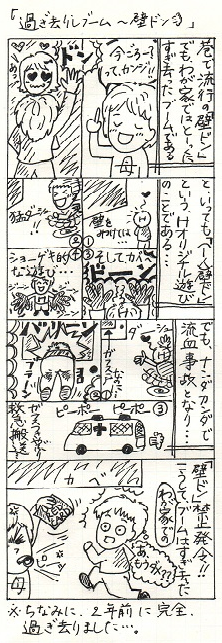 「過ぎ去りしブーム～壁ドン」
巷で流行の「壁ドン」
でも、わが家ではとーっくに
すぎ去ったブームである
今ごろーって
ってカンジ!!
ドン
母
といっても「ヘーイ壁ドン」
というHオリジナル遊び
のことである…
①
壁を
みつけたら…
②
猛ダーシ
③
そして、カベに
ドーン
④
ショーゲキ的
な遊び…
でも、ナンダカンダで
流血事故となり…
①
ダーシュ
②
バリーン
ガラス
ピーポー
ピーポー
③
救急搬送
「壁ドン」禁止発令!!
こうして、ブームはすぎ去った
わが家での
カベ
※ちなみに、2年前に完全に
過ぎ去りました…。